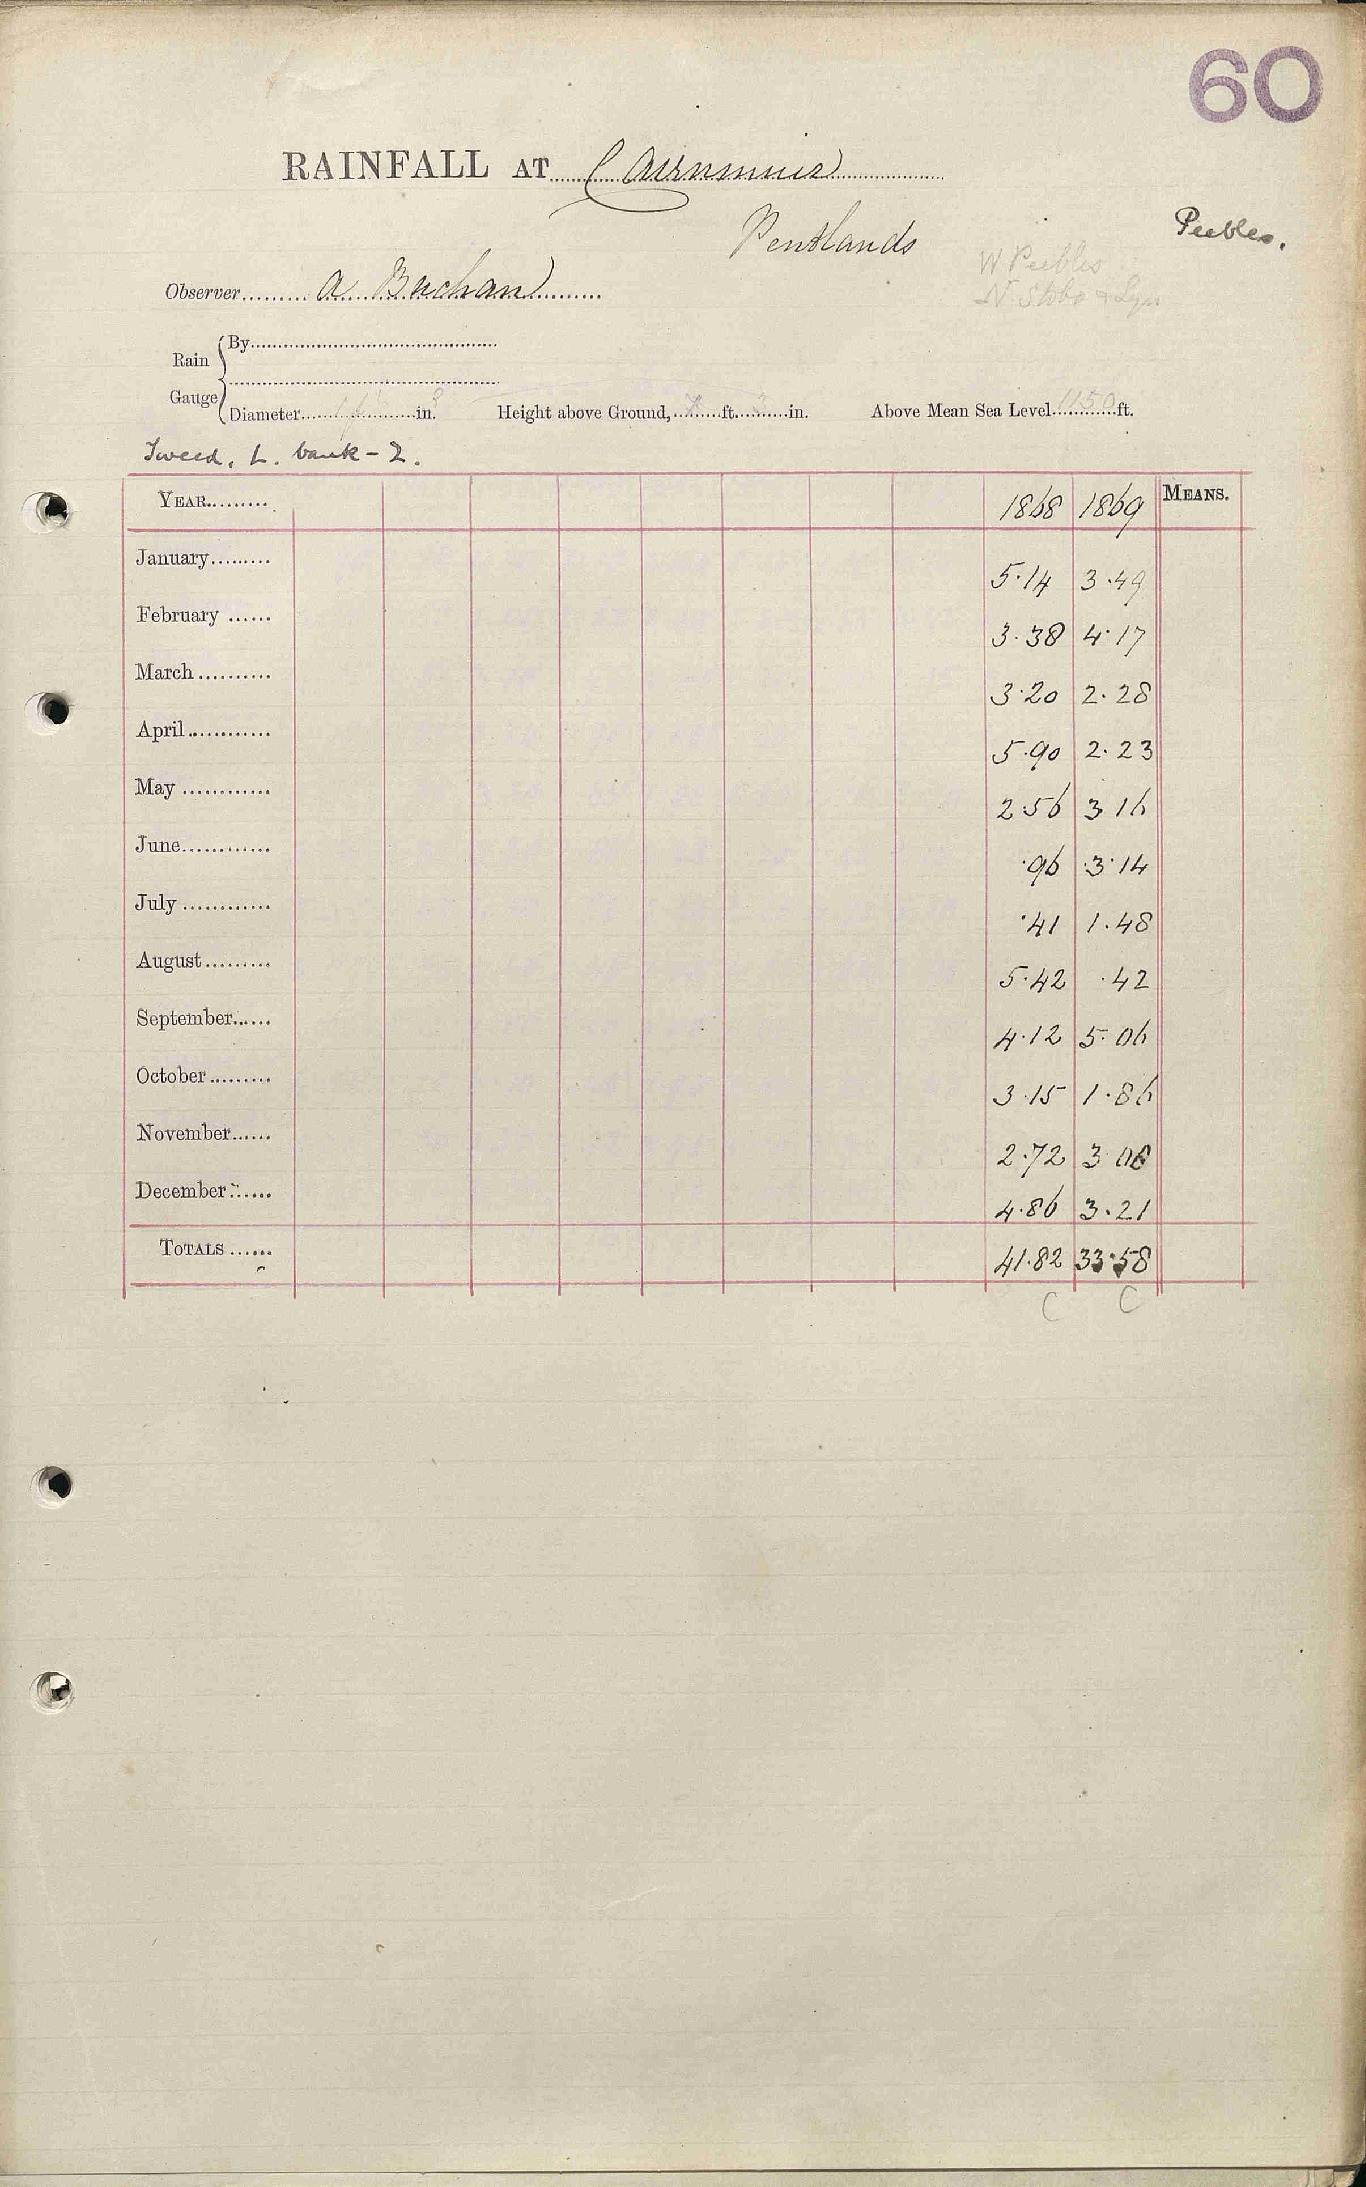 60
RAINFALL AT Cairnmuir
Pentlands
Peebles.
W Peebles
N. Stobo & Lyn
Observer A Buchan
Rain Gauge
By
Diameter in. Height above Ground, ft. in. Above Mean Sea Level 1150 ft.
Tweed, L. bank - 2.
YEAR 1868 1869 MEANS.
January 5.14 3.49
February 3.38 4.17
March 3.20 2.28
April 5.90 2.23
May 2.56 3.16
June .96 3.14
July .41 1.48
August 5.42 .42
September 4.12 5.06
October 3.15 1.86
November 2.72 3.08
December 4.86 3.21
TOTALS 41.82 33.58
C C